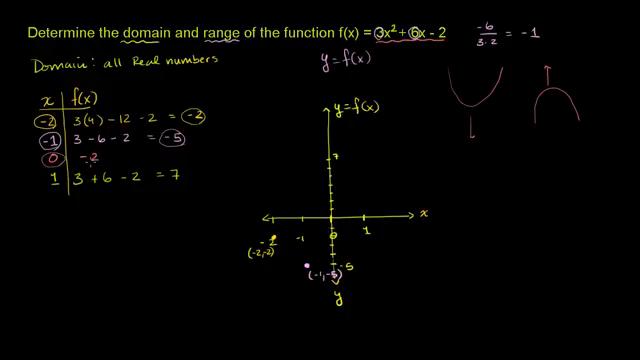 Determine the domain and range of the function f(x) = 3x² + 6x - 2
-6
3·2 = -1
Domain: all Real numbers
y = f(x)
x f(x)
-2 3(4) - 12 - 2 = -2
-1 3 - 6 - 2 = -5
0 -2
1 3 + 6 - 2 = 7
y = f(x)
7
x
-2 -1 0 1
(-2,-2)
-5
(-1,-5)
y